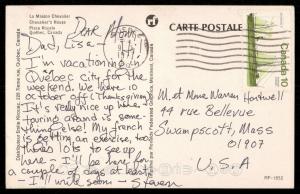 La Maison Chevalier
Chevalier's House
Place Royale
Québec, Canada
CARTE POSTALE
CANADA 10
DEAR Mom,
Dad, Lisa -
I'm vacationing in
Québec city for the
weekend. We have 10
October off (Thanksgiving).
It's really nice up here -
touring around is some-
thing else! My french
is getting an exercise, to
There's lots to see up
here - I'll be here for
a couple of days at least.
- I'll write soon - Steven
M. et Mme Warren Hartwell
44 rue Bellevue
Swampscott, Mass
01907
U.S.A